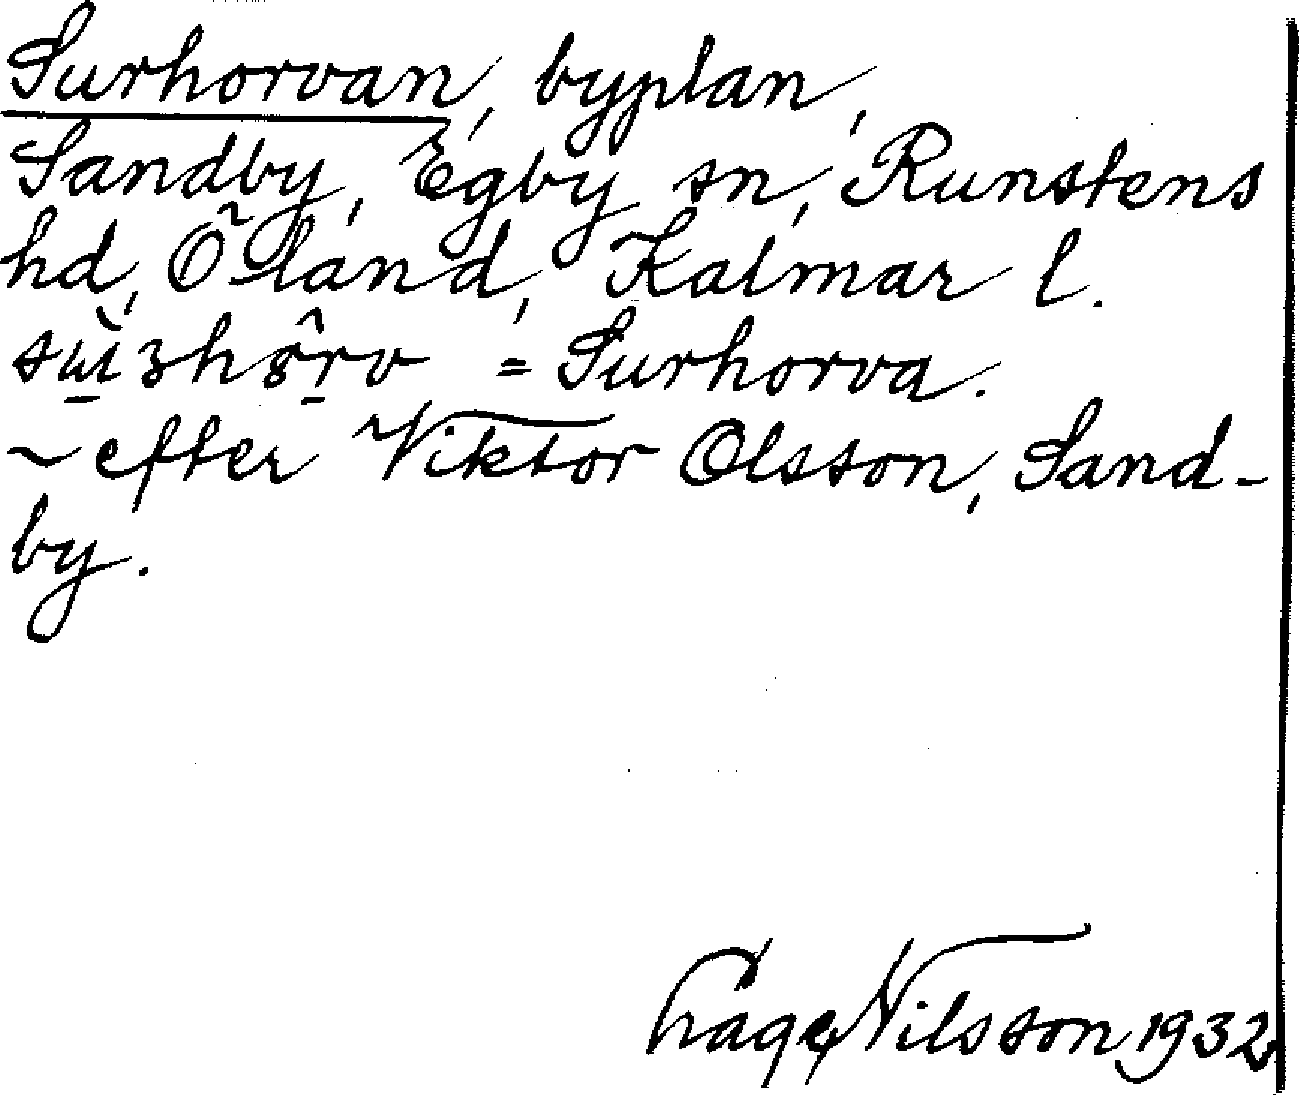 Surhorvan, byplan,
Sandby, Egby sn, Runstens
hd, Öland, Kalmar l.
= Surhorva.
~ efter Viktor Olsson, Sand-
by.
Nilsson 1932